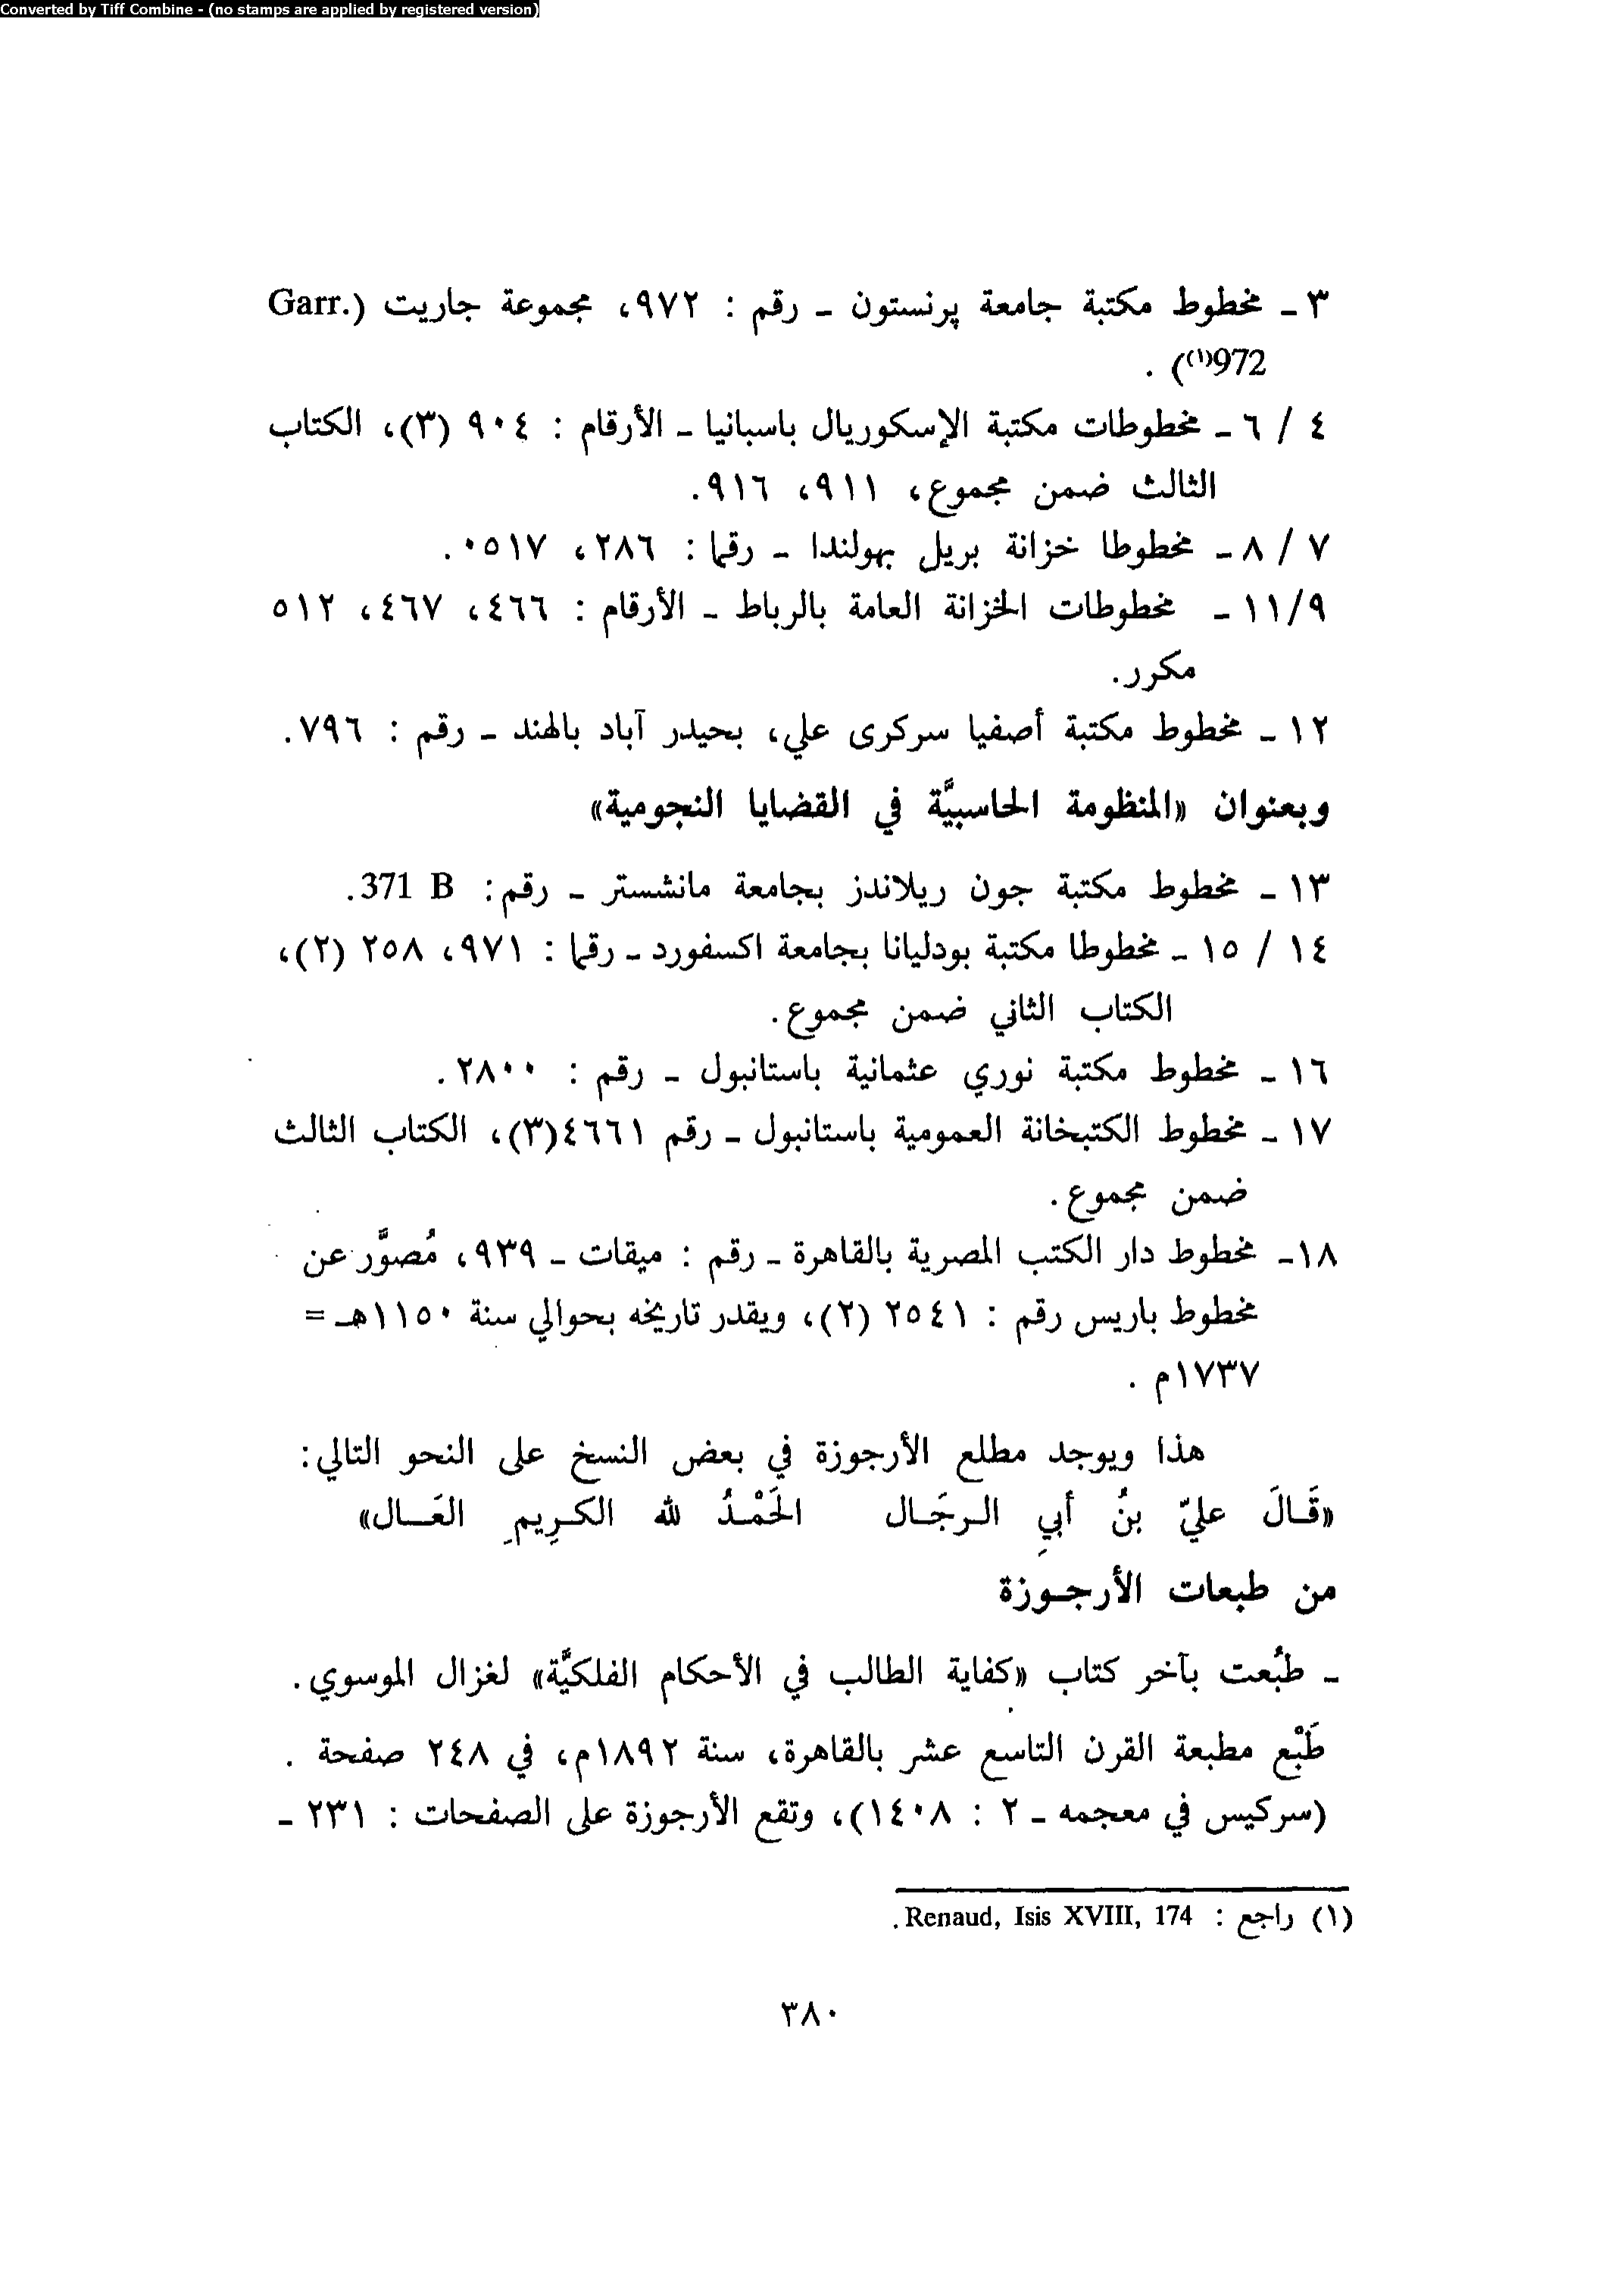 Converted by Tiff Combine - (no stamps are applied by registered version)
٣ ـ مخطوط مكتبة جامعة پرنستون ـ رقم : ٩٧٢، مجموعة جاريت (Garr.
972⁽¹⁾) .
٤ / ٦ ـ مخطوطات مكتبة الإسكوريال باسبانيا ـ الأرقام : ٩٠٤ (٣)، الكتاب
الثالث ضمن مجموع، ٩١١، ٩١٦.
٧ / ٨ ـ مخطوطا خزانة بريل بهولندا ـ رقما : ٢٨٦، ٥١٧٠.
٩/١١ ـ مخطوطات الخزانة العامة بالرباط ـ الأرقام : ٤٦٦، ٤٦٧، ٥١٢
مكرر.
١٢ ـ مخطوط مكتبة أصفيا سركرى علي، بحيدر آباد بالهند ـ رقم : ٧٩٦.
وبعنوان «المنظومة الحاسبيَّة في القضايا النجومية»
١٣ ـ مخطوط مكتبة جون ريلاندز بجامعة مانشستر ـ رقم: 371 B.
١٤ / ١٥ ـ مخطوطا مكتبة بودليانا بجامعة اكسفورد ـ رقما : ٩٧١، ٢٥٨ (٢)،
الكتاب الثاني ضمن مجموع.
١٦ ـ مخطوط مكتبة نوري عثمانية باستانبول ـ رقم : ٢٨٠٠.
١٧ ـ مخطوط الكتبخانة العمومية باستانبول ـ رقم ٤٦٦١(٣)، الكتاب الثالث
ضمن مجموع.
١٨ـ مخطوط دار الكتب المصرية بالقاهرة ـ رقم : ميقات ـ ٩٣٩، مُصوَّر عن
مخطوط باريس رقم : ٢٥٤١ (٢)، ويقدر تاريخه بحوالي سنة ١١٥٠هـ =
١٧٣٧م .
هذا ويوجد مطلع الأرجوزة في بعض النسخ على النحو التالي:
«قَـالَ عليّ بنُ أبي الـرجَـال الحَمْـدُ لله الكـرِيمِ العَـــال»
من طبعات الأرجـوزة
ـ طبُعت بآخر كتاب «كفاية الطالب في الأحكام الفلكيَّة» لغزال الموسوي.
طَبْع مطبعة القرن التاسع عشر بالقاهرة، سنة ١٨٩٢م، في ٢٤٨ صفحة .
(سركيس في معجمه ـ ٢ : ١٤٠٨)، وتقع الأرجوزة على الصفحات : ٢٣١ ـ
(١) راجع : Renaud, Isis XVIII, 174.
٣٨٠